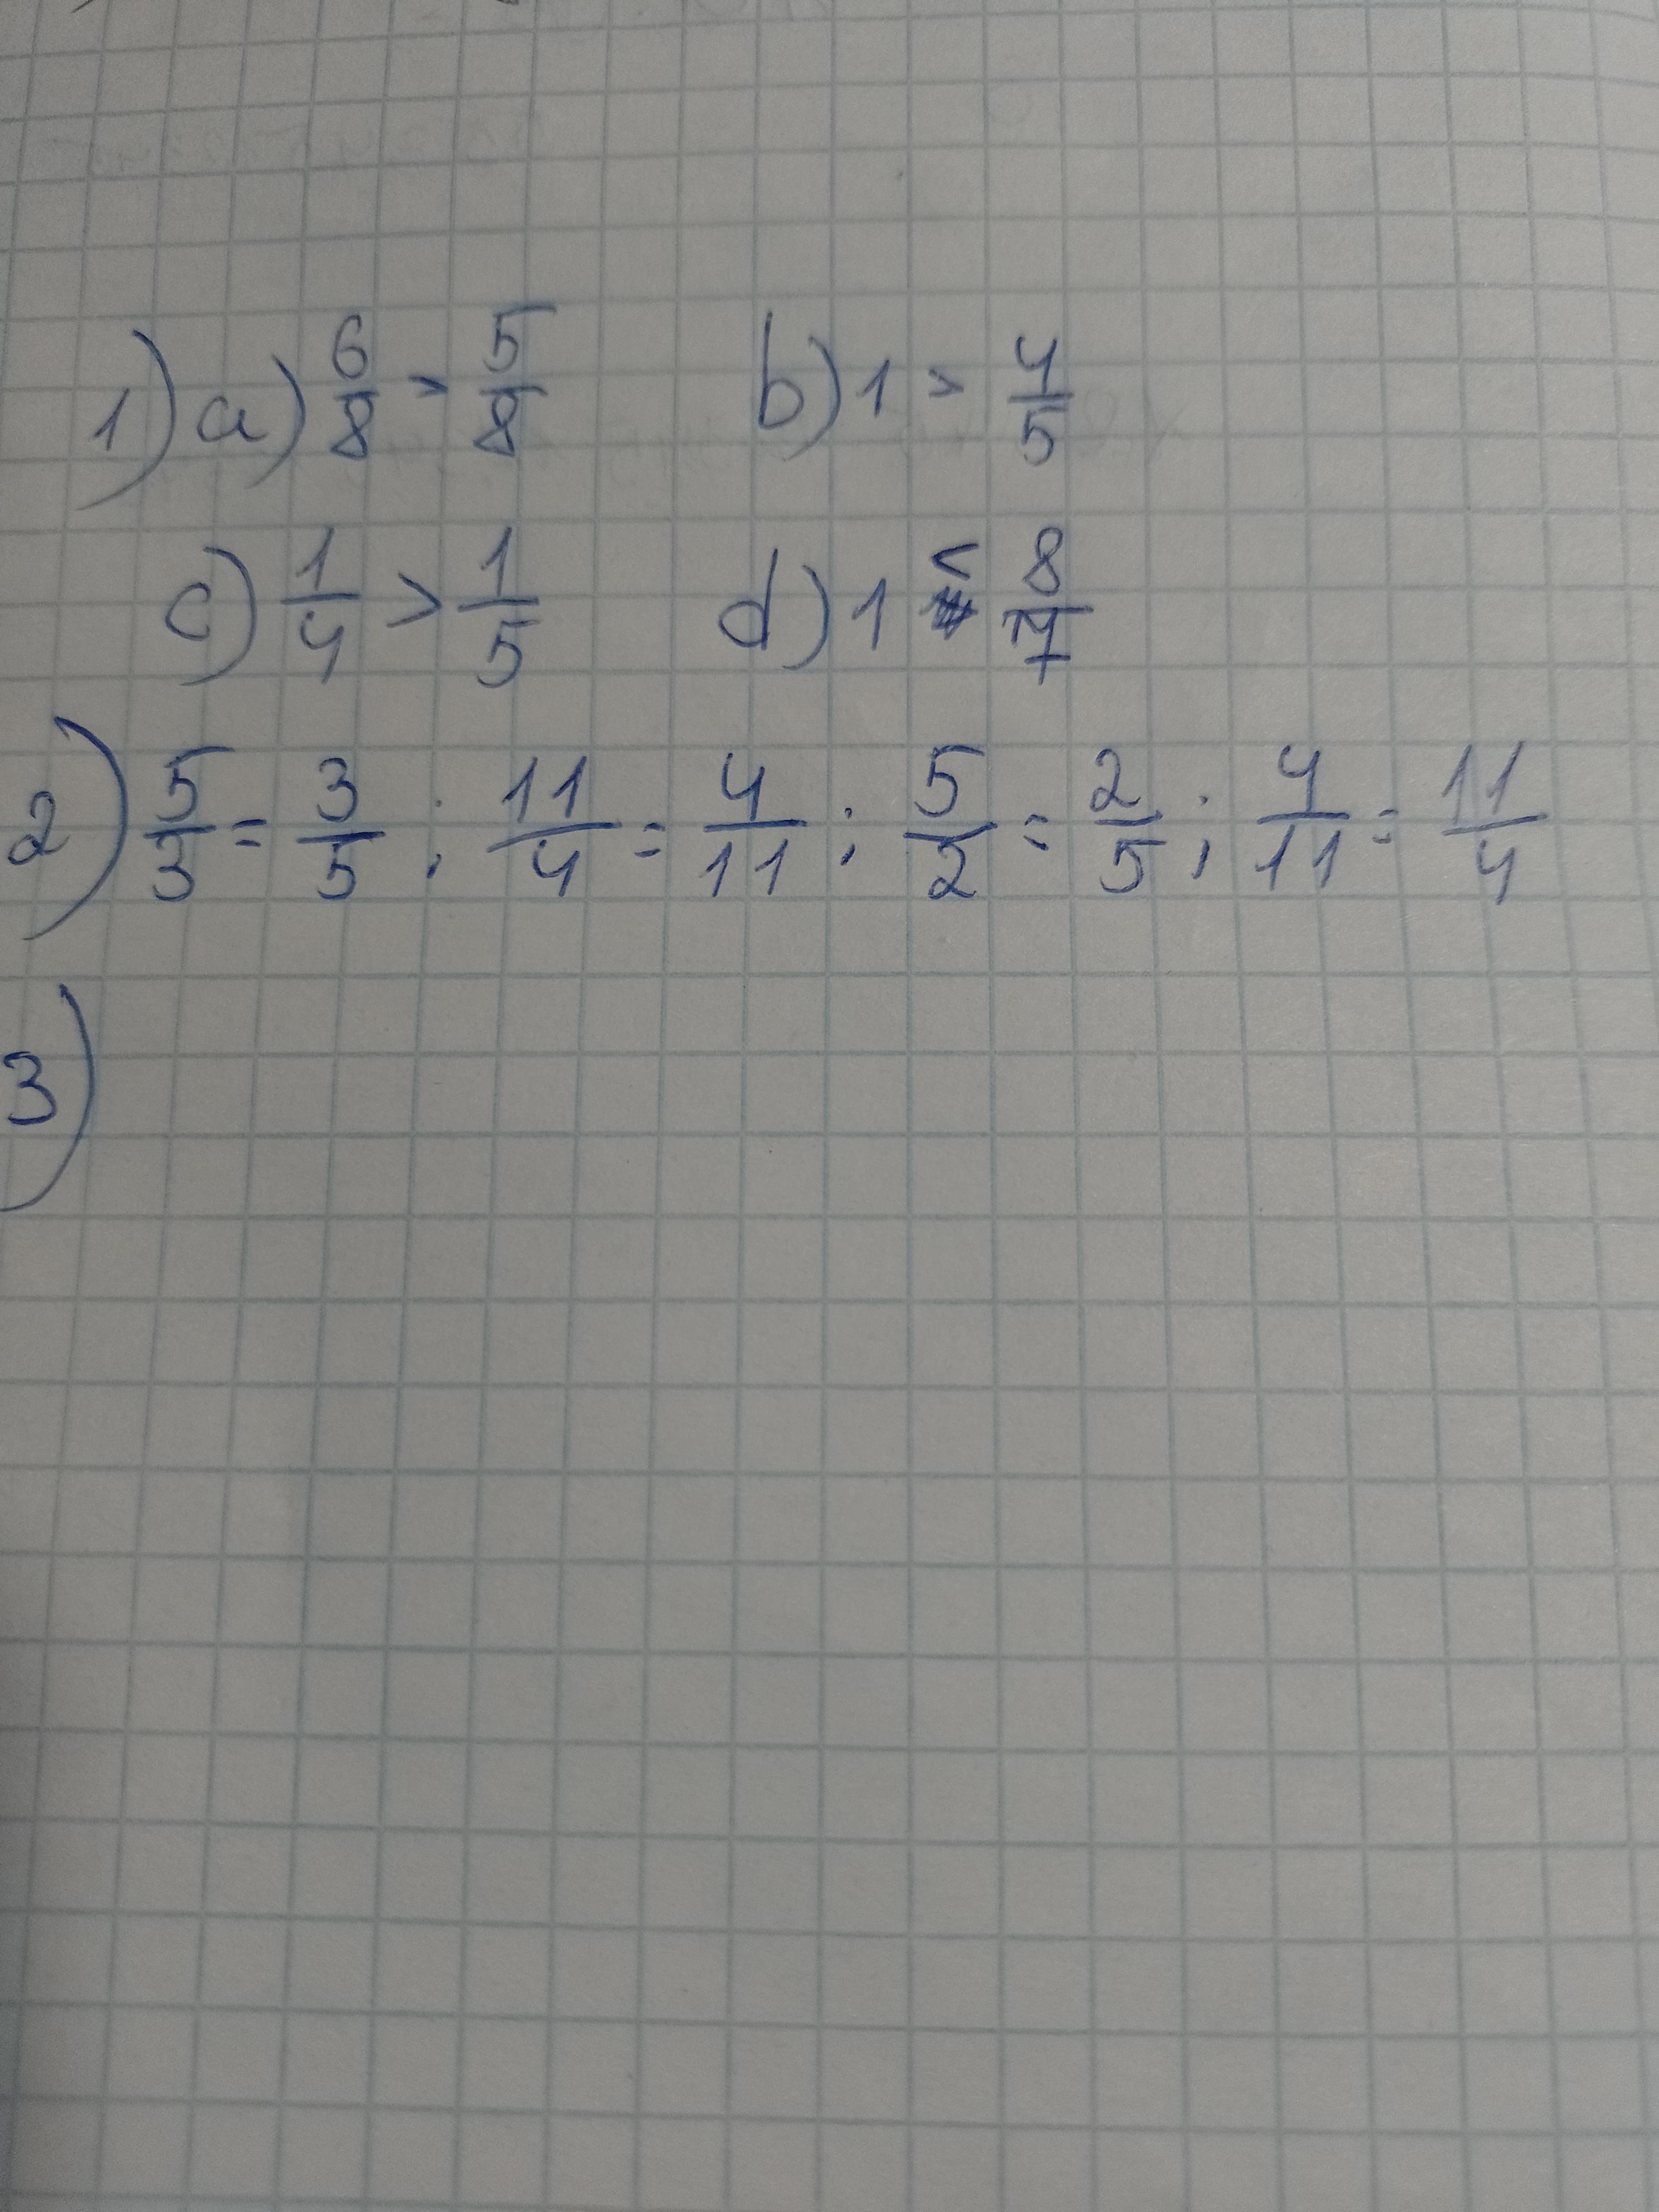 1) a) 6/8 > 5/8 b) 1 > 4/5
c) 1/4 > 1/5 d) 1 < 8/7
2) 5/3 = 3/5 ; 11/4 = 4/11 ; 5/2 = 2/5 ; 4/11 = 11/4
3)